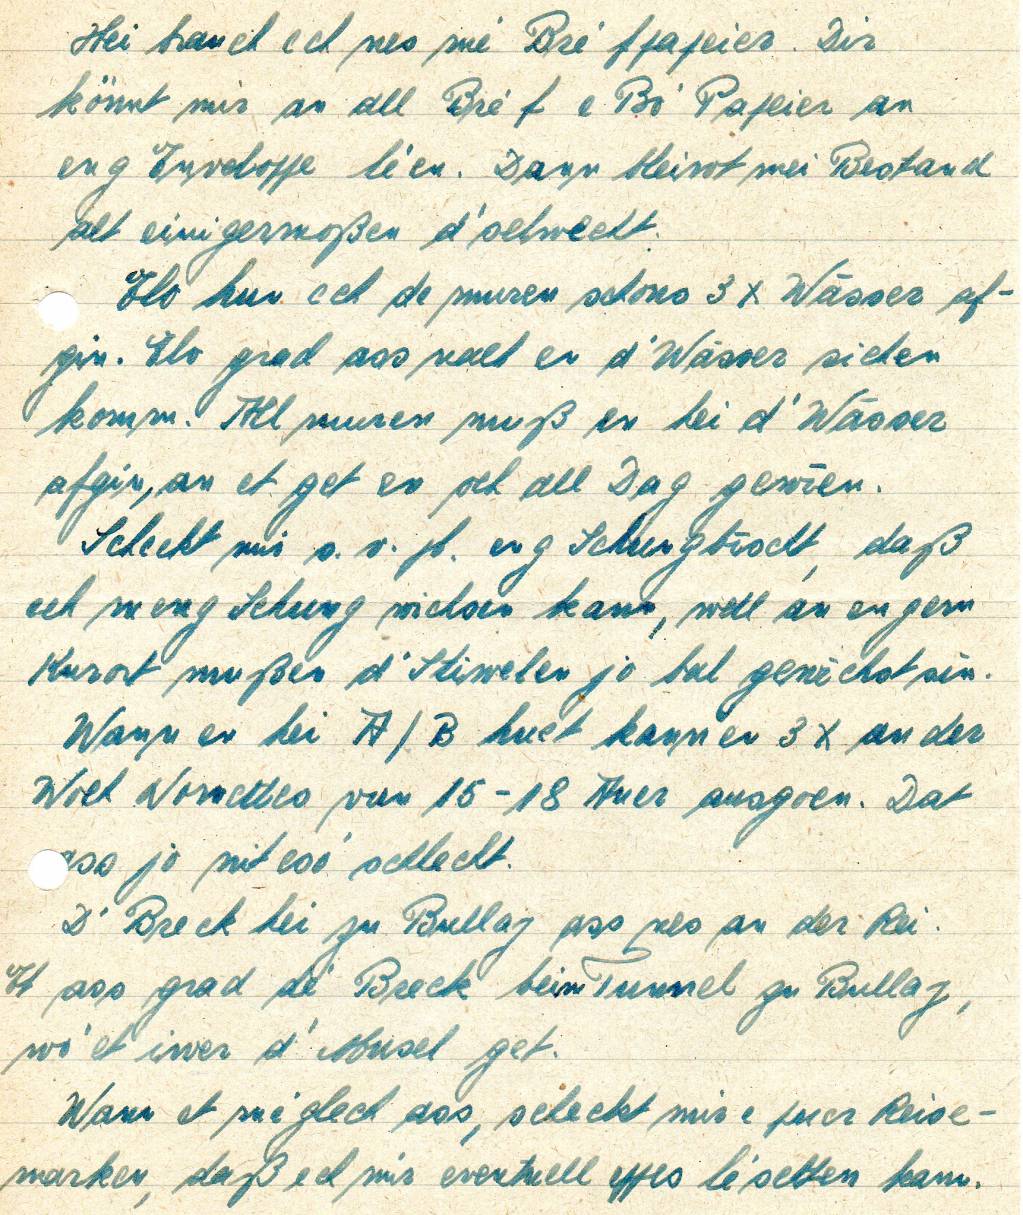 Hei brauch ech nes mé Bréfpapeier. Dir
könnt mir an all Bréf e Bö Papeier an
eng Enveloppe léen. Dann bleiwt mei Bestand
alt einigermoßen d'selwecht.
Elo hun ech de muren schons 3 X Wässer af-
gin. Elo grad ass nach en d'Wässer sichen
komm. All muren muß en hei d'Wässer
afgin, an et get en och all Dag gewien.
Scheckt mir s. v. pl. eng Schungbischt, daß
ech meng Schung wichsen kann, well an engem
Kurort mußen d'Stiwelen jo bal gewichst sin.
Wann en hei A/B huet kann en 3 X an der
Woch Nomettes vun 15-18 Auer ausgoen. Dat
ass jo nit esó schlecht.
D'Breck hei zu Bullay ass nes an der Rei.
Et ass grad dé Breck beim Tunnel zu Bullay,
wó et iwer d'Musel get.
Wann et méglech ass, scheckt mir e puer Reise-
marken, daß ech mir eventuell eppes léschten kann.